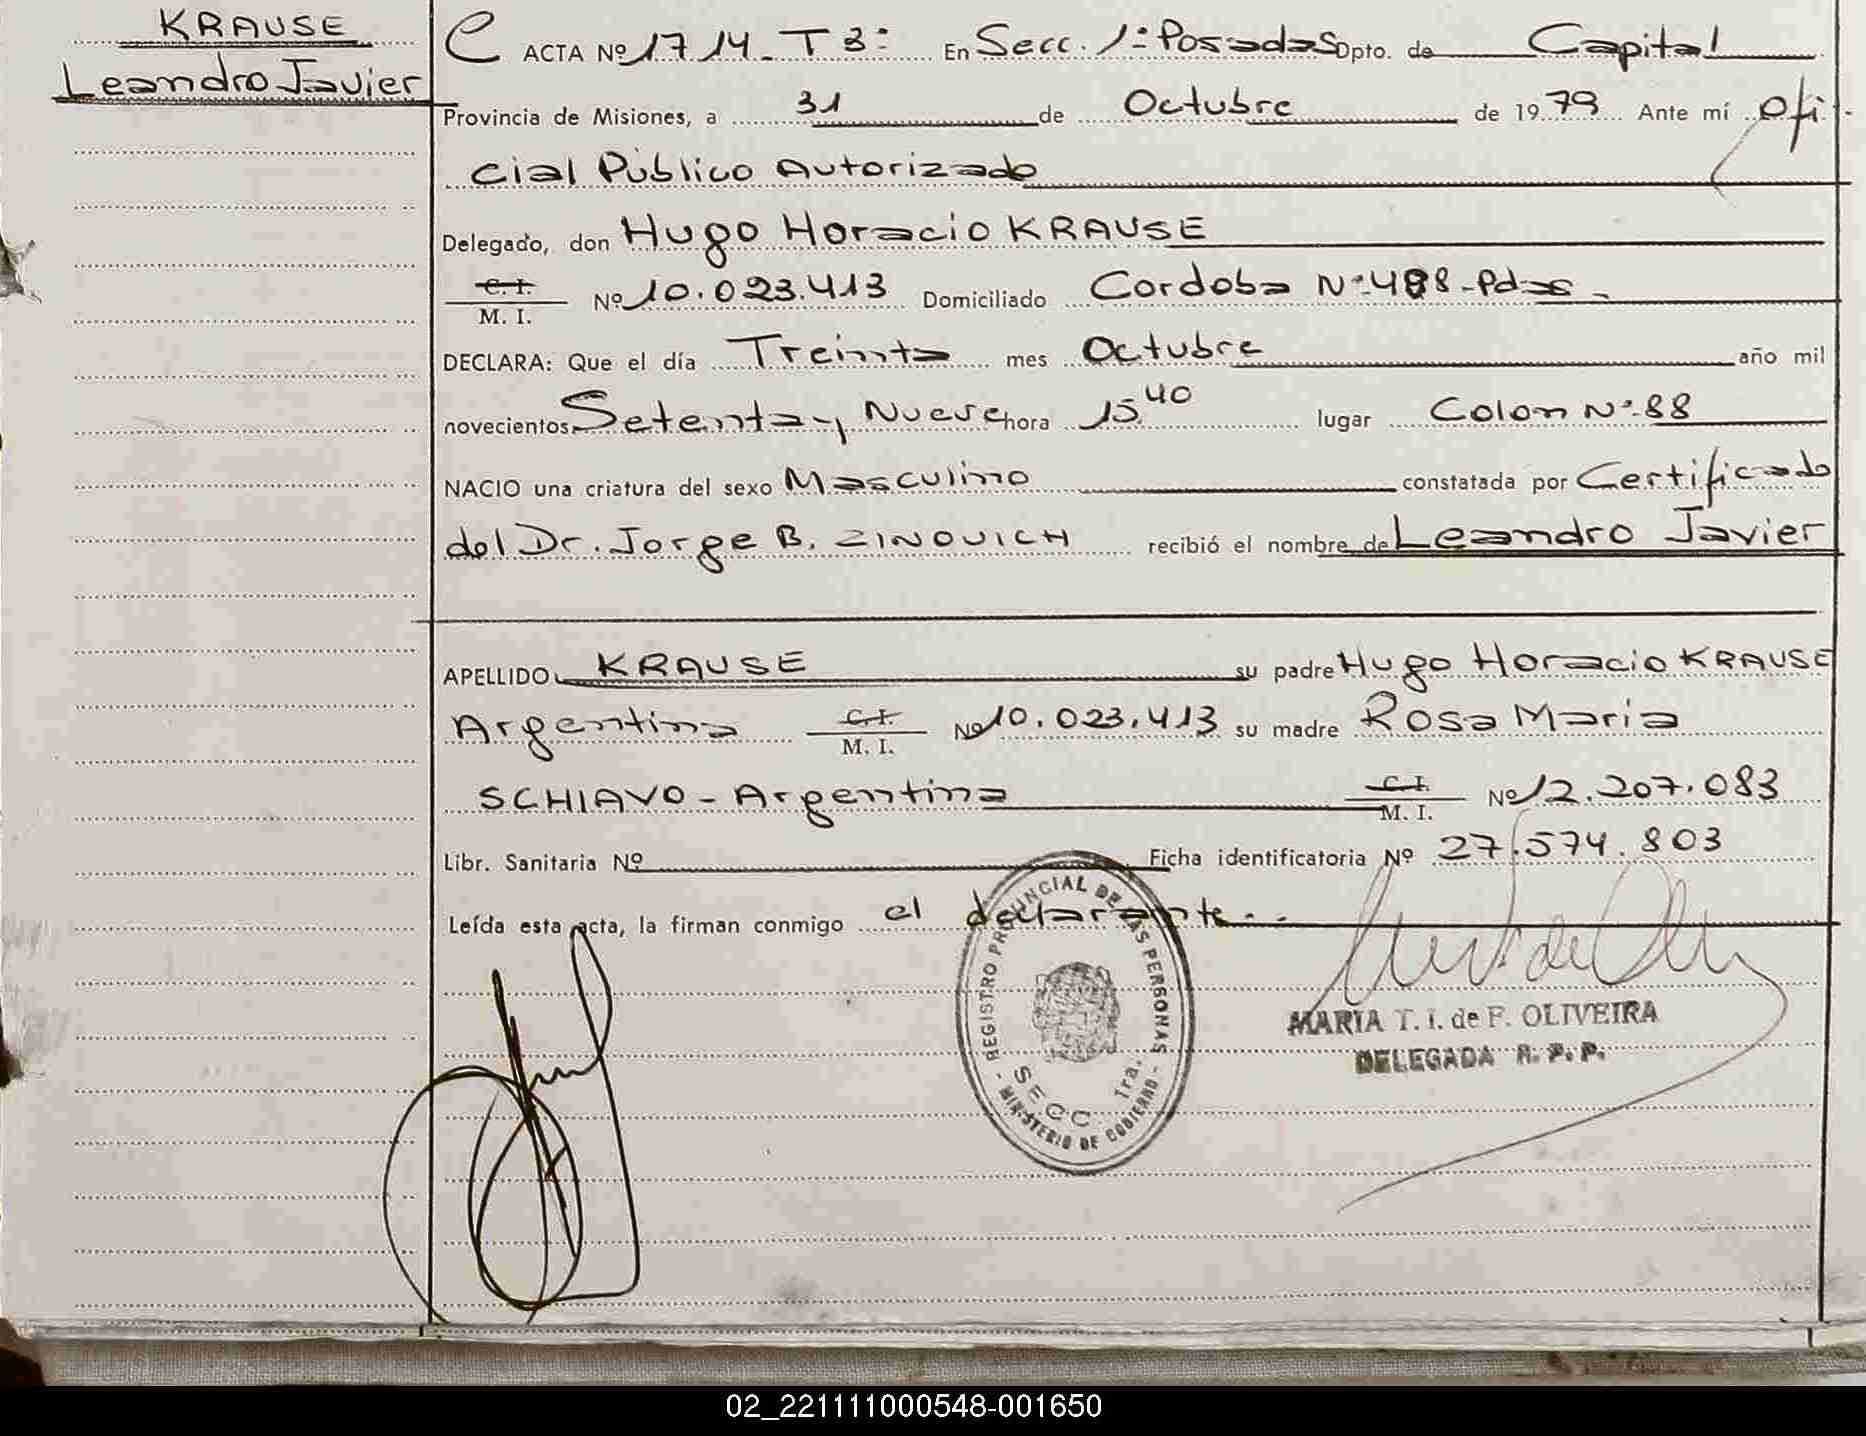 KRAUSE
Leandro Javier
C ACTA Nº 1714 - T 3º En Secc. 1ª Posadas Dpto. de Capital
Provincia de Misiones, a 31 de Octubre de 1979 Ante mí Ofi
cial Público Autorizado
Delegado, don Hugo Horacio KRAUSE
C. I.
M. I. Nº 10.023.413 Domiciliado Cordoba Nº 488 - Pdas -
DECLARA: Que el día Treinta mes Octubre año mil
novecientos Setenta y Nueve hora 15,40 lugar Colon Nº 88
NACIO una criatura del sexo Masculino constatada por Certificado
del Dr. Jorge B. ZINOVICH recibió el nombre de Leandro Javier
APELLIDO KRAUSE su padre Hugo Horacio KRAUSE
Argentina C. I. / M. I. Nº 10.023.413 su madre Rosa Maria
SCHIAVO - Argentina C. I. / M. I. Nº 12.207.083
Libr. Sanitaria Nº Ficha identificatoria Nº 27.574.803
Leída esta acta, la firman conmigo el declarante. -
REGISTRO PROVINCIAL DE LAS PERSONAS
SECC. 1ra.
- MINISTERIO DE GOBIERNO -
MARIA T. I. de F. OLIVEIRA
DELEGADA R. P. P.
02_221111000548-001650